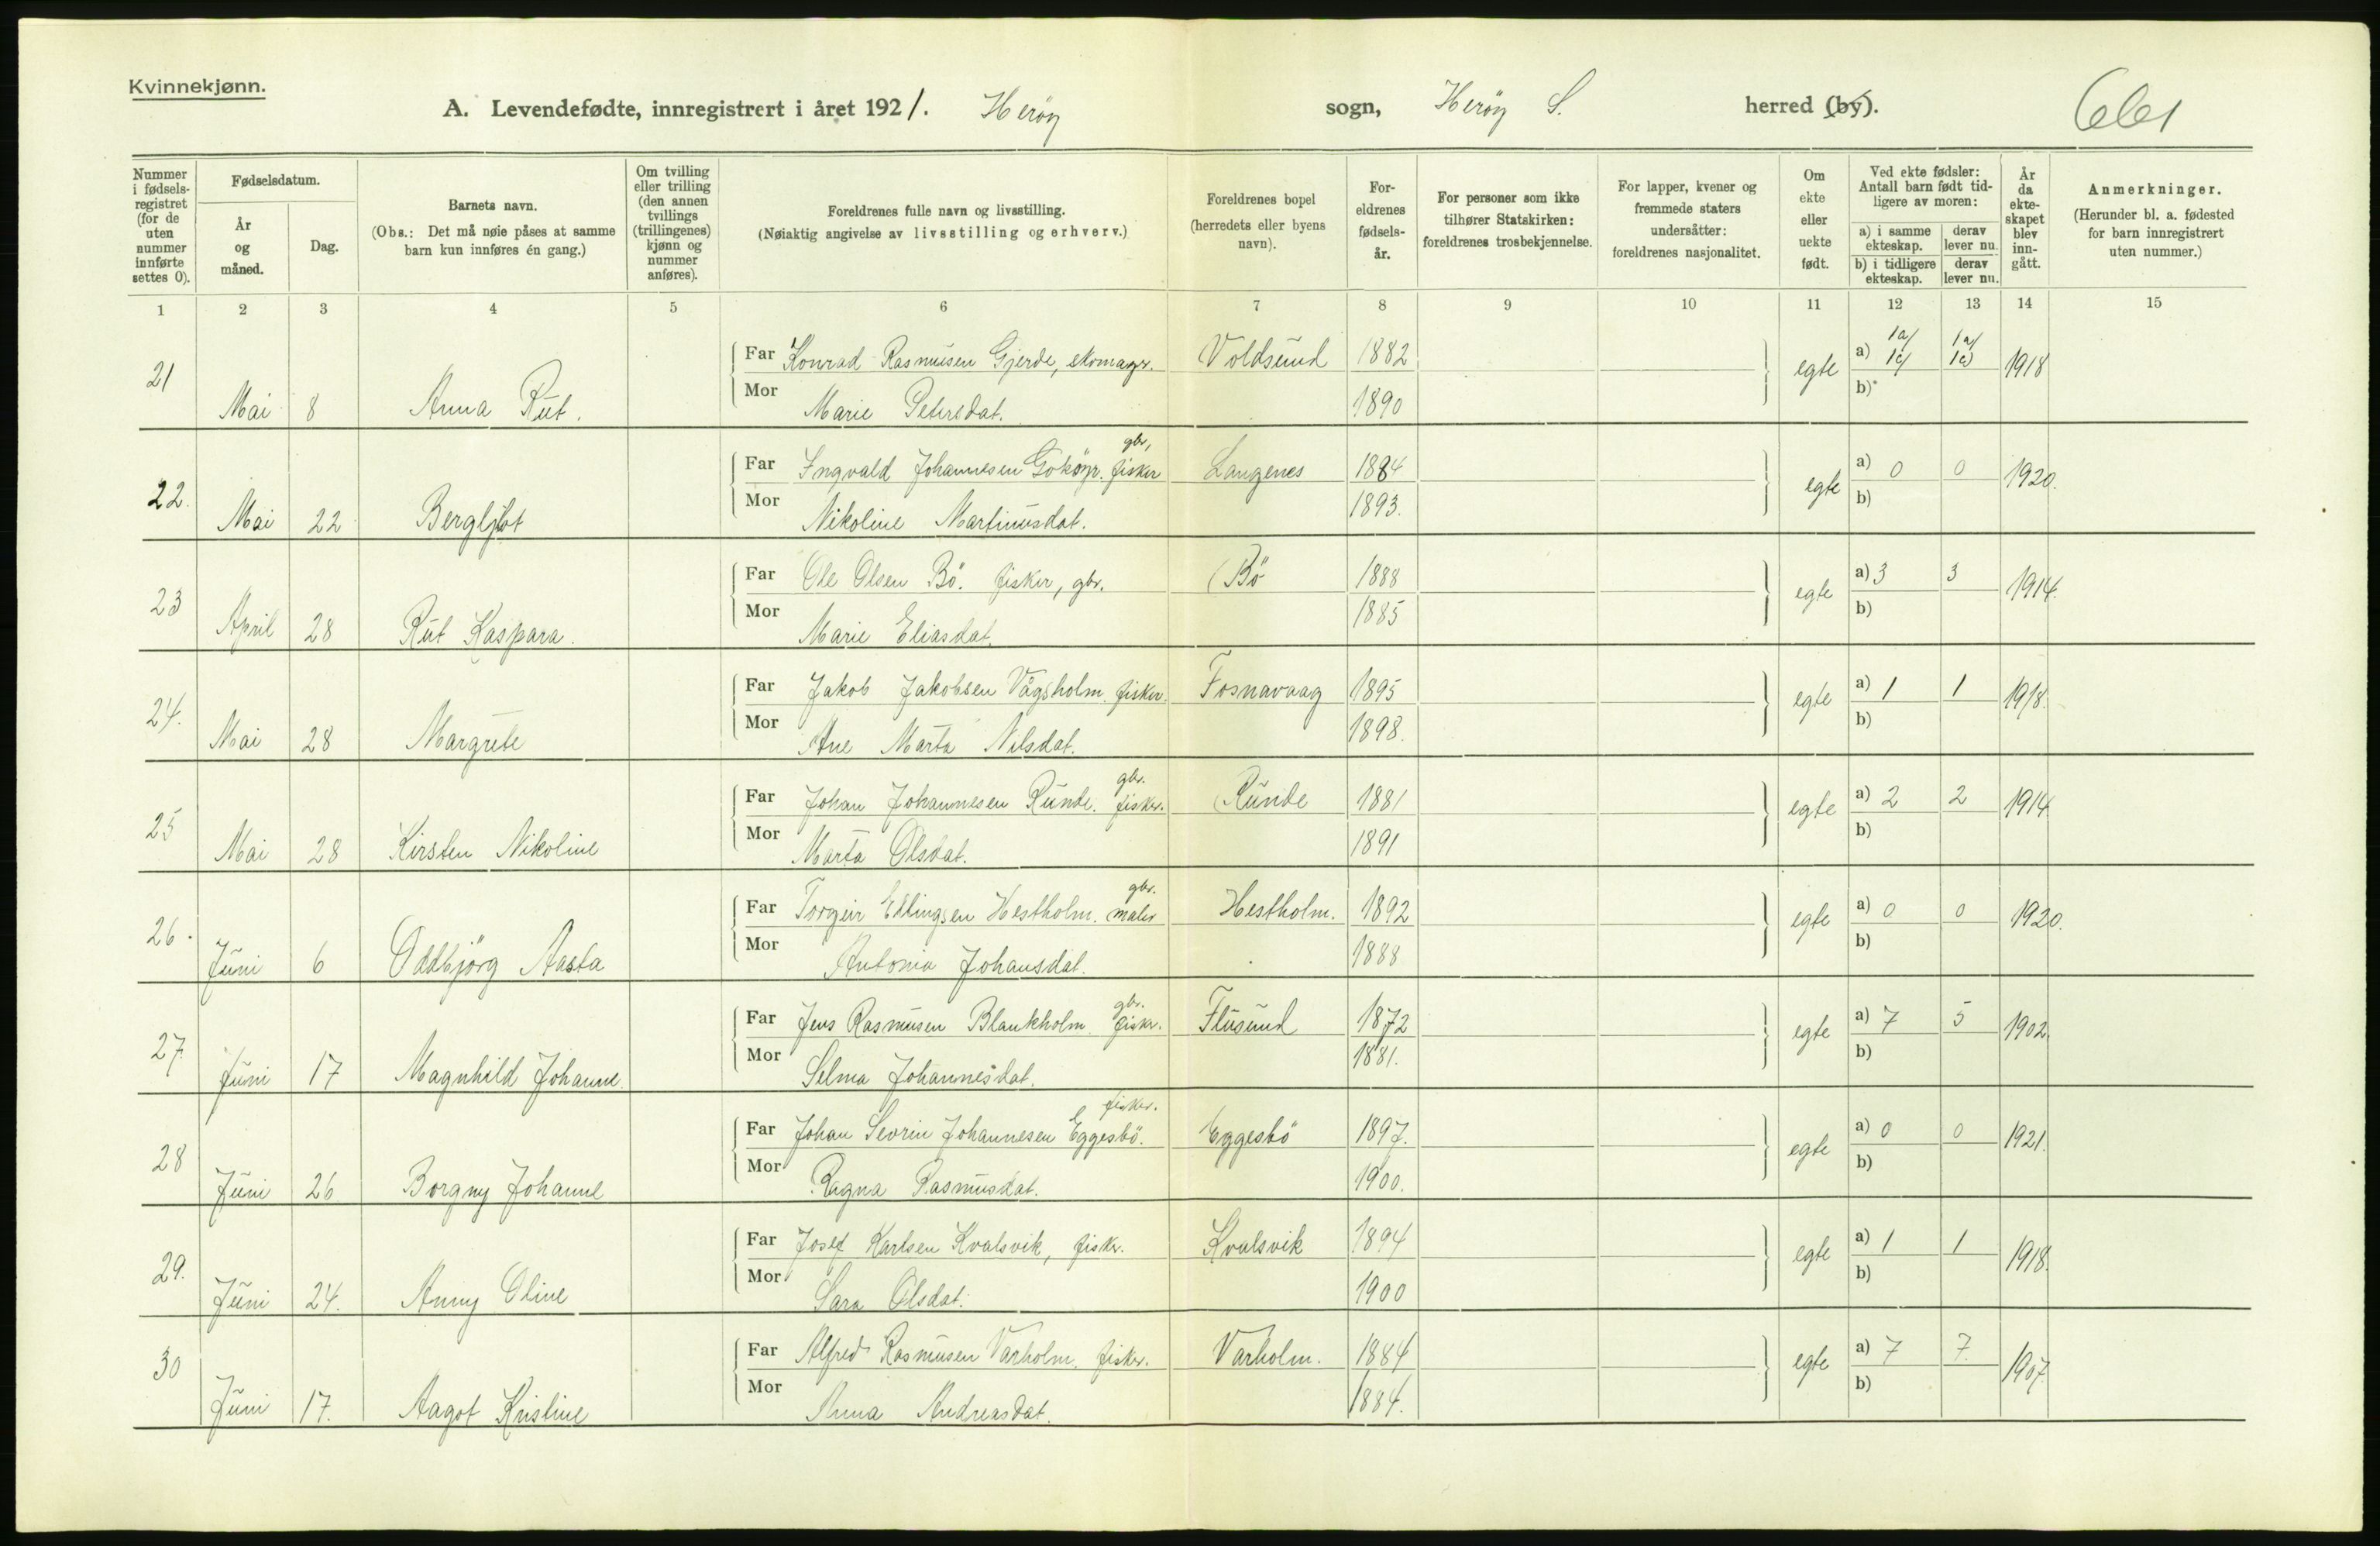 Kvinnekjønn.
A. Levendefødte, innregistrert i året 1921. Heröy sogn, Heröy S. herred (by).
Nummer i fødselsregistret (for de uten nummer innførte settes 0).
Fødselsdatum.
År og måned.
Dag.
Barnets navn.
(Obs.: Det må nøie påses at samme barn kun innføres én gang.)
Om tvilling eller trilling (den annen tvillings (trillingenes) kjønn og nummer anføres).
Foreldrenes fulle navn og livsstilling.
(Nøiaktig angivelse av livsstilling og erhverv.)
Foreldrenes bopel (herredets eller byens navn).
Foreldrenes fødselsår.
For personer som ikke tilhører Statskirken: foreldrenes trosbekjennelse.
For lapper, kvener og fremmede staters undersåtter: foreldrenes nasjonalitet.
Om ekte eller uekte født.
Ved ekte fødsler: Antall barn født tidligere av moren:
a) i samme ekteskap. derav lever nu.
b) i tidligere ekteskap. derav lever nu.
År da ekteskapet blev inngått.
Anmerkninger.
(Herunder bl. a. fødested for barn innregistrert uten nummer.)
1 2 3 4 5 6 7 8 9 10 11 12 13 14 15
21 Mai 8 Anna Rut. Far Konrad Rasmusen Gjerde, skomagr. Voldsund 1882 egte a) 1a/ 1a/ 1918
Mor Marie Petersdat. 1890 b)
22. Mai 22 Bergljot Far Ingvald Johannesen Goköyr. gbr, fisker Langenes 1884 egte a) 0 0 1920.
Mor Nikoline Martinusdat. 1893. b)
23 April 28 Rut Kaspara. Far Ole Olsen Bö. fisker, gbr. Bö 1888 egte a) 3 3 1914.
Mor Marie Eliasdat. 1885 b)
24. Mai 28 Margrete Far Jakob Jakobsen Vågsholm. fisker. Fosnavaag 1895 egte a) 1 1 1918.
Mor Ane Marta Nilsdat. 1898. b)
25 Mai 28 Kirsten Nikoline Far Johan Johannesen Runde. gbr. fisker. Runde 1881 egte a) 2 2 1914
Mor Marta Olsdat. 1891 b)
26. Juni 6 Oddbjörg Aasta Far Torgeir Ellingsen Hestholm. gbr. maler Hestholm. 1892 egte a) 0 0 1920.
Mor Antonia Johansdat. 1888 b)
27. Juni 17 Magnhild Johanne. Far Jens Rasmusen Blankholm. gbr. fisker. Flusund 1872 egte a) 7 5 1902.
Mor Selma Johannesdat. 1881. b)
28 Juni 26 Borgny Johanne Far Johan Sevrin Johannesen Eggesbö. fisker. Eggesbö 1897. egte a) 0 0 1921.
Mor Ragna Rasmusdat. 1900. b)
29. Juni 24. Anny Oline Far Josef Karlsen Kvalsvik, fisker. Kvalsvik 1894 egte a) 1 1 1918.
Mor Sara Olsdat. 1900 b)
30 Juni 17. Aagot Kristine Far Alfred Rasmusen Varholm. fisker. Varholm. 1884 egte a) 7 7. 1907.
Mor Anna Andreasdat. 1884. b)